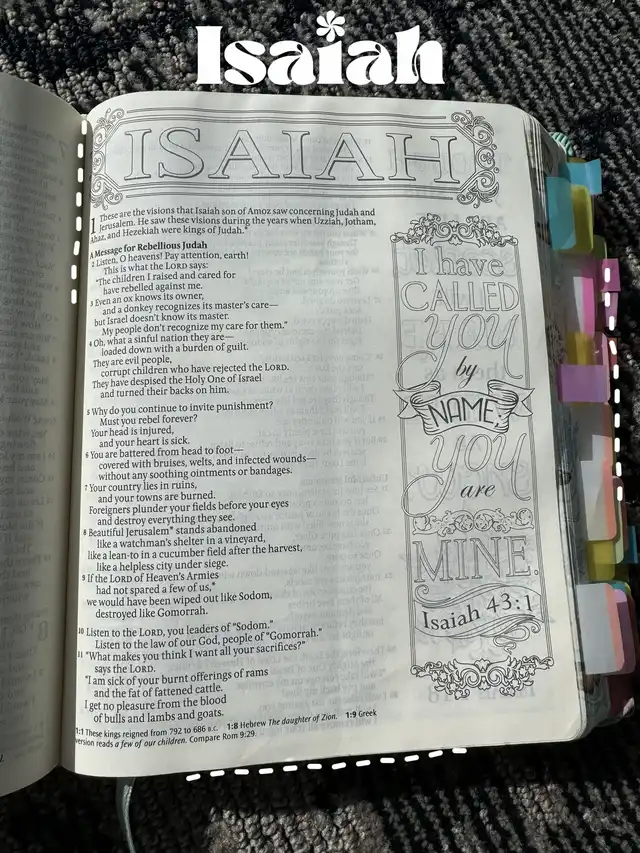 Isaiah
ISAIAH
1 These are the visions that Isaiah son of Amoz saw concerning Judah and
Jerusalem. He saw these visions during the years when Uzziah, Jotham,
Ahaz, and Hezekiah were kings of Judah.*
A Message for Rebellious Judah
2 Listen, O heavens! Pay attention, earth!
This is what the LORD says:
“The children I raised and cared for
have rebelled against me.
3 Even an ox knows its owner,
and a donkey recognizes its master’s care—
but Israel doesn’t know its master.
My people don’t recognize my care for them.”
4 Oh, what a sinful nation they are—
loaded down with a burden of guilt.
They are evil people,
corrupt children who have rejected the LORD.
They have despised the Holy One of Israel
and turned their backs on him.
5 Why do you continue to invite punishment?
Must you rebel forever?
Your head is injured,
and your heart is sick.
6 You are battered from head to foot—
covered with bruises, welts, and infected wounds—
without any soothing ointments or bandages.
7 Your country lies in ruins,
and your towns are burned.
Foreigners plunder your fields before your eyes
and destroy everything they see.
8 Beautiful Jerusalem* stands abandoned
like a watchman’s shelter in a vineyard,
like a lean-to in a cucumber field after the harvest,
like a helpless city under siege.
9 If the LORD of Heaven’s Armies
had not spared a few of us,*
we would have been wiped out like Sodom,
destroyed like Gomorrah.
10 Listen to the LORD, you leaders of “Sodom.”
Listen to the law of our God, people of “Gomorrah.”
11 “What makes you think I want all your sacrifices?”
says the LORD.
“I am sick of your burnt offerings of rams
and the fat of fattened cattle.
I get no pleasure from the blood
of bulls and lambs and goats.
1:1 These kings reigned from 792 to 686 B.C. 1:8 Hebrew The daughter of Zion. 1:9 Greek
version reads a few of our children. Compare Rom 9:29.
I have
CALLED
you
by
NAME;
you
are
MINE.
Isaiah 43:1